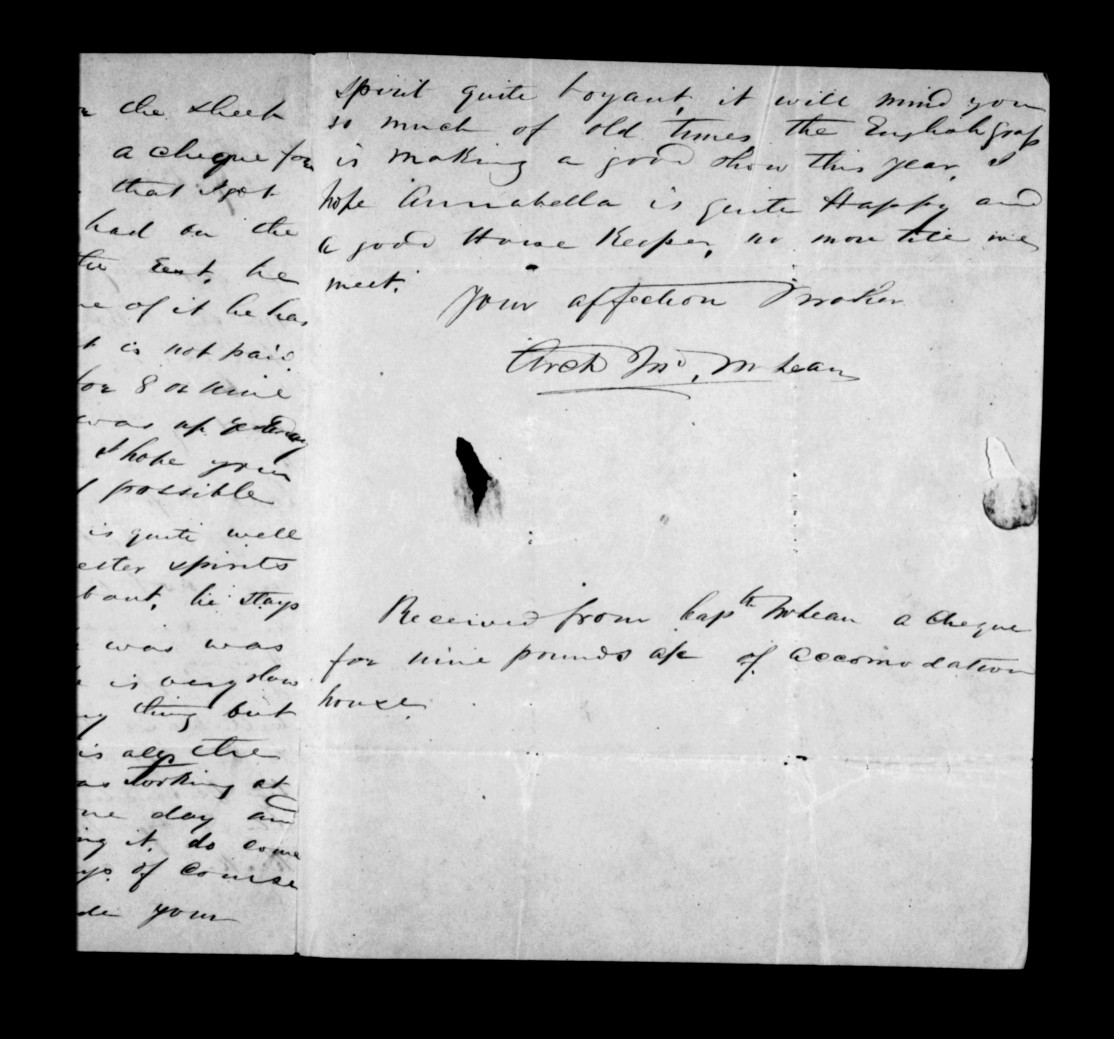 the sheet
a cheque for
that I got
had on the
the East, he
of it he has
t is not paid
for 8 or nine
was up yesterday
I hope your
possible
is quite well
spirits
bout, he stays
was was
is very slow
thing but
is also the
as looking at
day and
ing it, do come
of course
your
spirit quite boyant, it will mind you
so much of old times the English grass
is making a good show this year, I
hope Annabella is quite Happy and
a good House Keeper, no more till we
meet.
Your affection Brother
Arch Jno. McLean
Received from Captn McLean a cheque
for nine pounds a/c of accomodation
house.